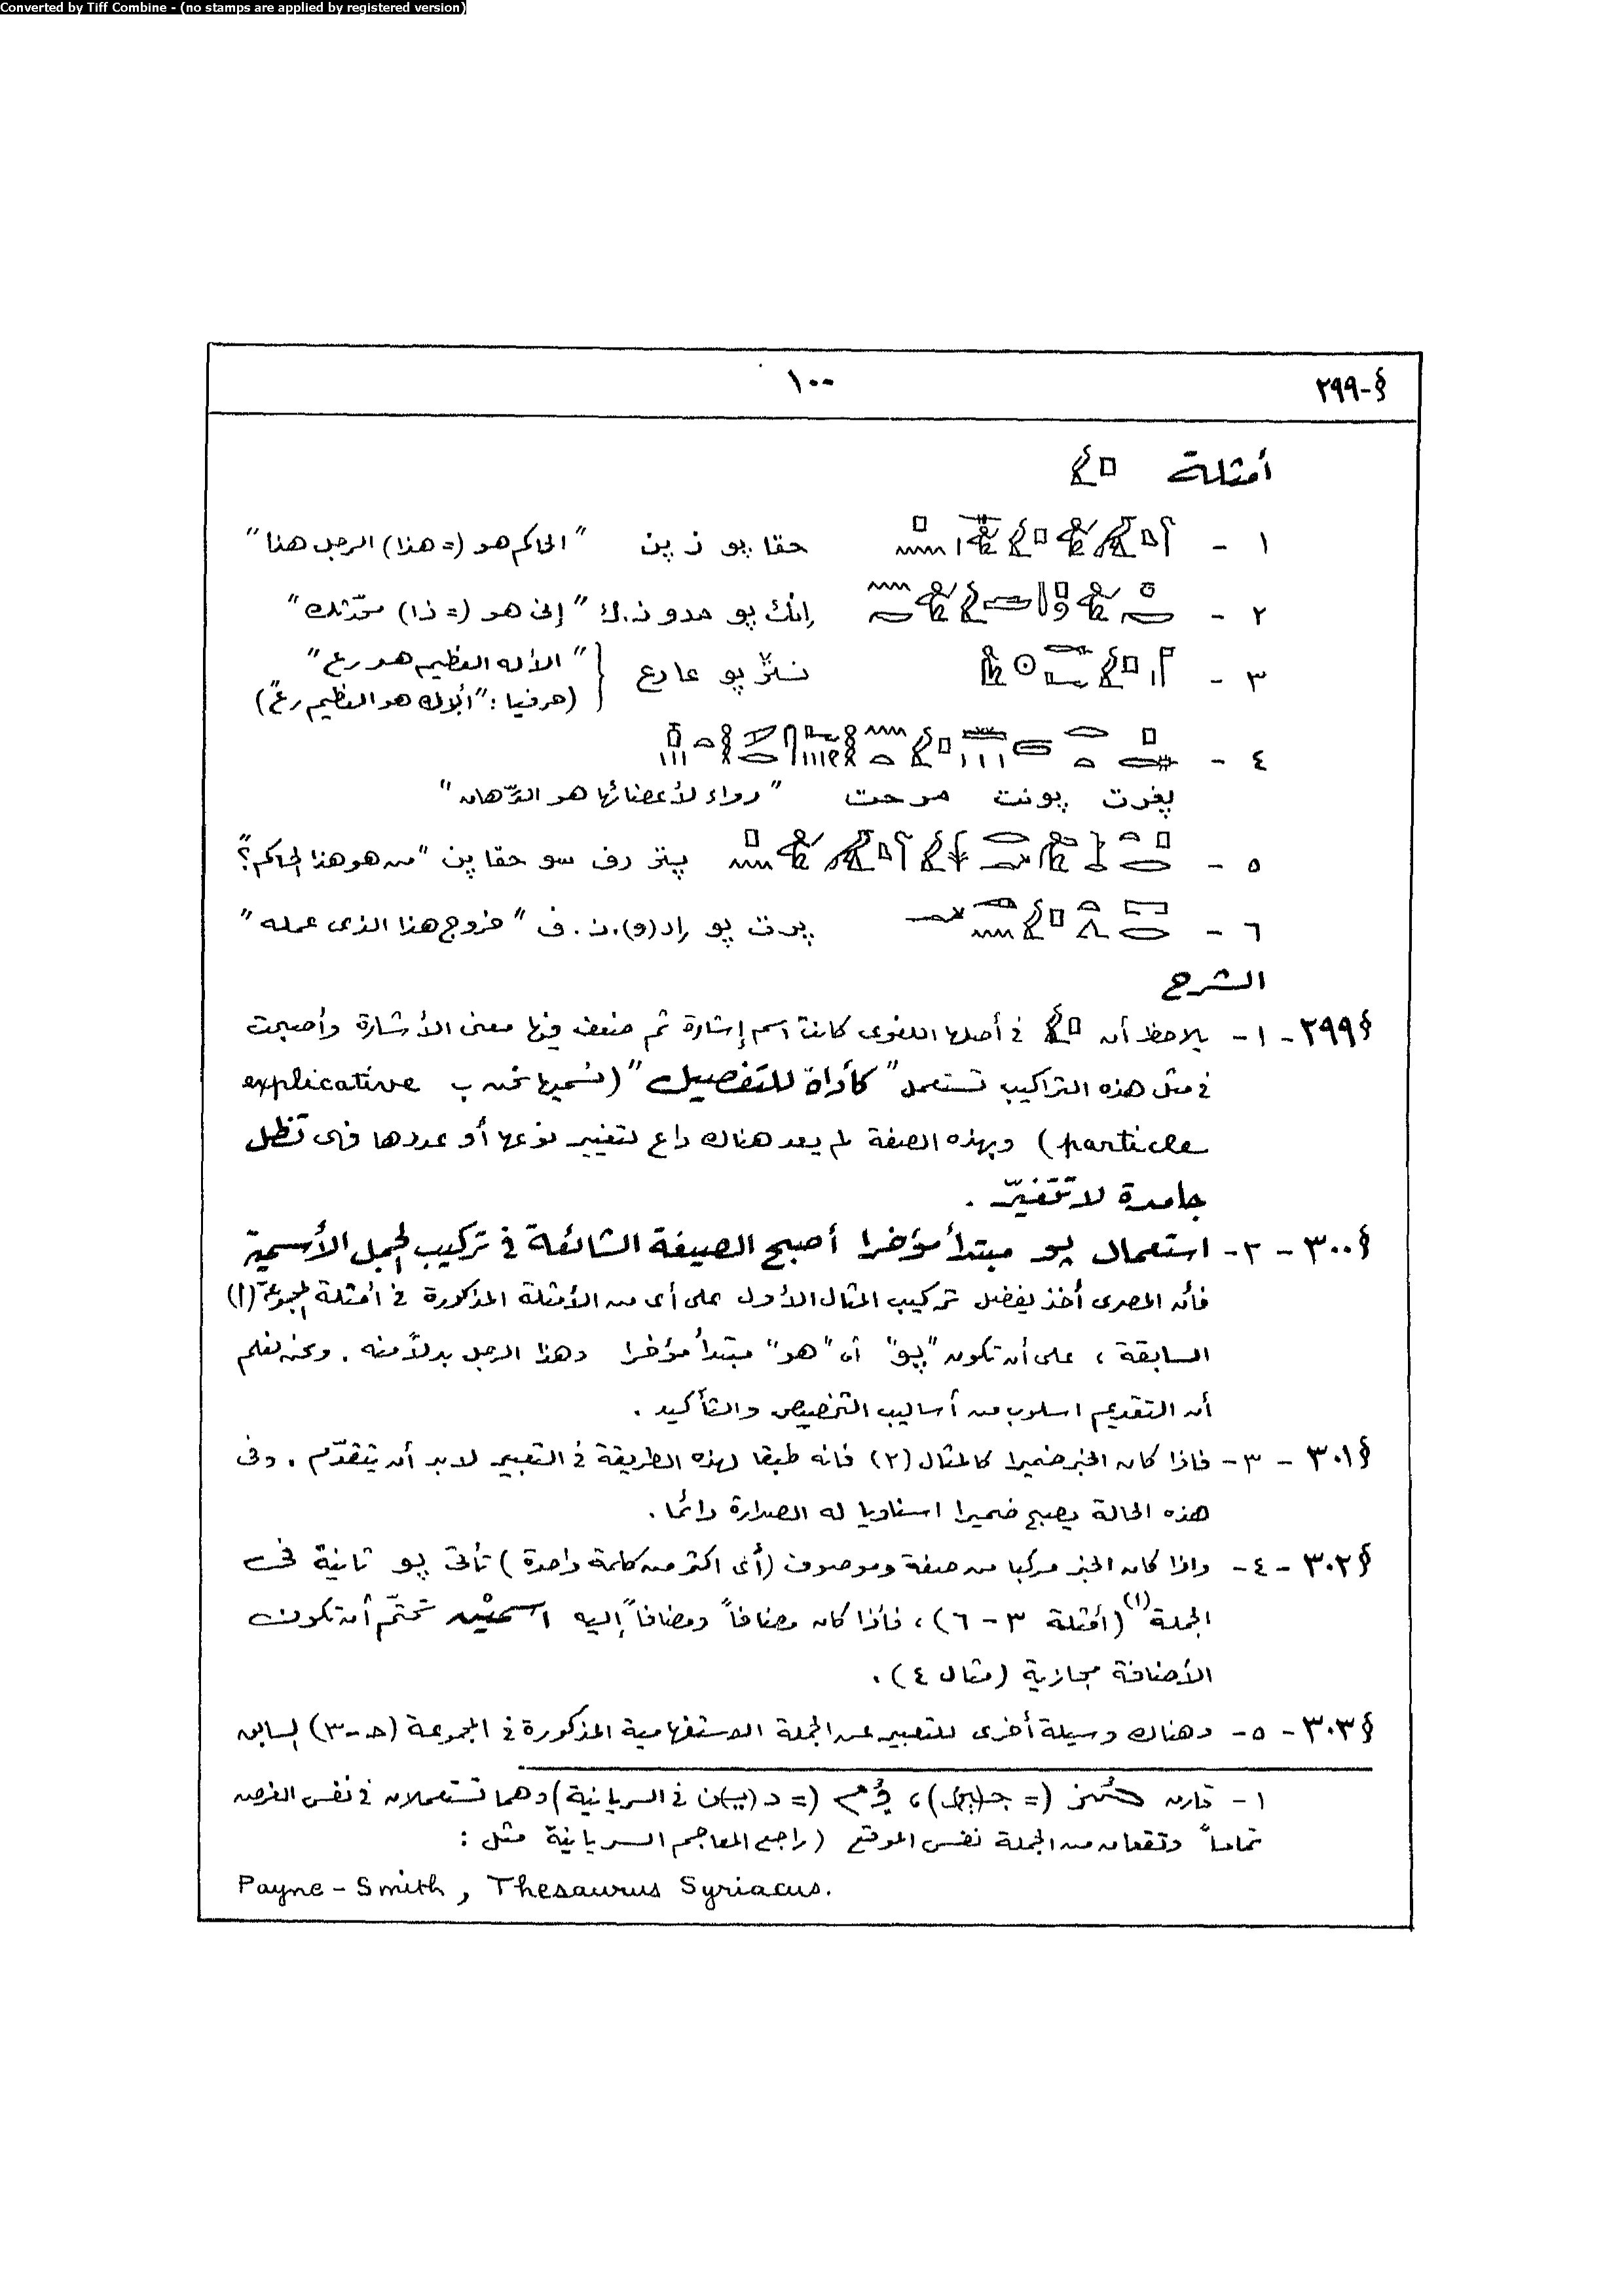 Converted by Tiff Combine - (no stamps are applied by registered version)
§-٢٩٩
١٠٠
أمثلة
١ - حقا پو ز پن "الحاكم هو (= هذا) الرجل هنا"
٢ - إنك پو مدو ن.ك "إنى هو (= ذا) محدّثك"
٣ - نتر پو عا رع { "الأله العظيم هو رع"
(حرفيا: "ألاله هو العظيم رع")
٤ -
پغرت پو نت مرحت "دواء لأعضائها هو الدّهان"
٥ - پتر رف سو حقا پن "من هو هذا الحاكم؟"
٦ - پرت پو إر(و).ن.ف "خروج هذا الذى عمله"
الشرح
§٢٩٩ - ١ - يلاحظ أن فى أصلها اللغوى كانت اسم إشارة ثم ضعف فيها معنى الأشارة وأصبحت
فى مثل هذه التراكيب تستعمل "كأداة للتفصيل" (نسميها نحن ب explicative
particle) وبهذه الصفة لم يعد هناك داع لتغيير نوعها أو عددها فهى تظل
جامدة لا تتغيّر .
§٣٠٠ - ٢ - استعمال پو مبتدأ مؤخرا أصبح الصيغة الشائعة فى تركيب الجمل الأسمية
فأن المصرى أخذ يفضل تركيب المثال الأول على أى من الأمثلة المذكورة فى أمثلة المجموعة (ا)
السابقة ، على أن تكون "پو" أى "هو" مبتدأ مؤخرا وهذا الرجل بدلاً منه . ونحن نعلم
أن التقديم اسلوب من أساليب التخصيص والتأكيد .
§٣٠١ - ٣ - فاذا كان الخبر ضميرا كالمثال (٢) فانه طبقا لهذه الطريقة فى التعبير لابد أن يتقدّم . وفى
هذه الحالة يصبح ضميرا اسناديا له الصدارة دائما .
§٣٠٢ - ٤ - واذا كان الخبر مركبا من صفة وموصوف (أى اكثر من كلمة واحدة) تأتى پو ثانية فى
الجملة (١) (أمثلة ٣ - ٦) ، فأذا كان مضافاً ومضافاً إليه اسميْن تحتّم أن تكون
الأضافة مجازية (مثال ٤) .
§٣٠٣ - ٥ - وهناك وسيلة أخرى للتعبير عن الجملة الاستفهامية المذكورة فى المجموعة (حـ-٣) السابق
١ - قارن (= جير) ، (= دين فى السريانية) وهما تستعملان فى نفس الغرض
تماماً وتقعان من الجملة نفس الموقع (راجع المعاجم السريانية مثل :
Payne - Smith, Thesaurus Syriacus.